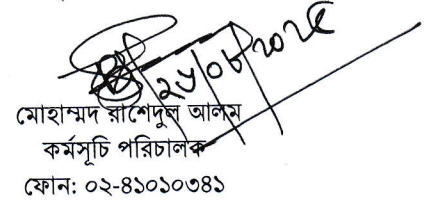 মোহাম্মদ রাশেদুল আলম
কর্মসূচি পরিচালক
ফোন: ০২-৪১০১০৩৪১